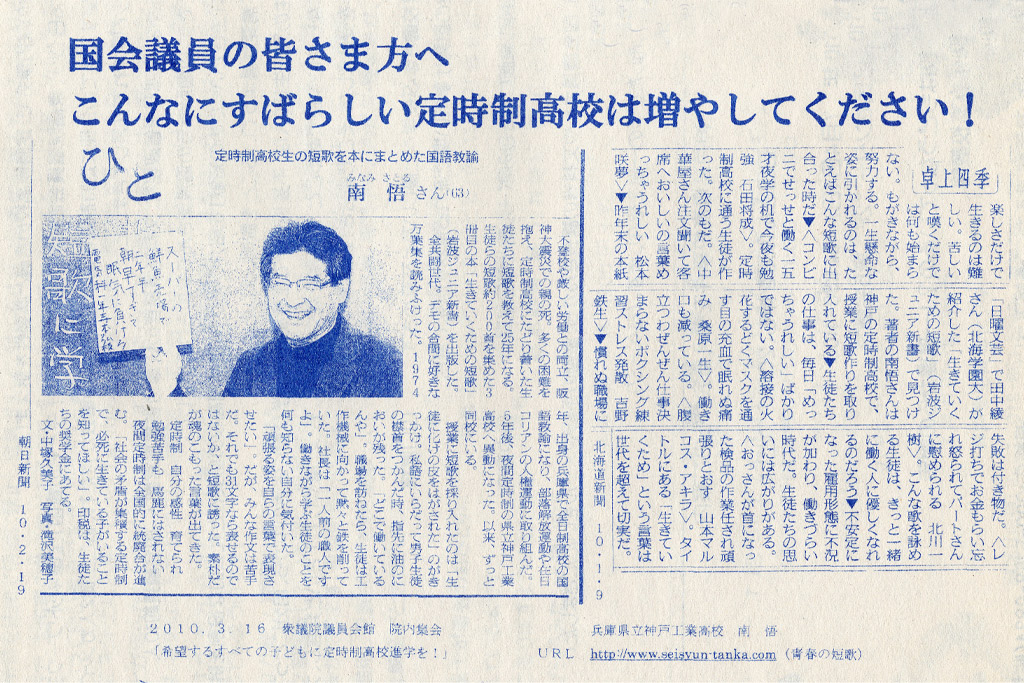 国会議員の皆さま方へ
こんなにすばらしい定時制高校は増やしてください！
ひと
定時制高校生の短歌を本にまとめた国語教諭
みなみ さとる
南 悟さん(63)
不登校や厳しい労働との両立、阪
神大震災での親の死。多くの困難を
抱え、定時制高校にたどり着いた生
徒たちに短歌を教えて25年になる。
生徒らの短歌約200首を集めた3
冊目の本「生きていくための短歌」
(岩波ジュニア新書)を出版した。
全共闘世代。デモの合間に好きな
万葉集を読みふけった。1974
年、出身の兵庫県で全日制高校の国
語教諭になり、部落解放運動や在日
コリアンの人権運動に取り組んだ。
5年後、夜間定時制の県立神戸工業
高校へ異動になった。以来、ずっと
同校にいる。
授業に短歌を採り入れたのは「生
徒に化けの皮をはがされた」のがき
っかけ。私語にいらだって男子生徒
の襟首をつかんだ時、指先に油のに
おいが残った。「どこで働いている
んや」。職場を訪ねたら、生徒は工
作機械に向かって黙々と鉄を削って
いた。社長は「一人前の職人です
よ」。働きながら学ぶ生徒のことを
何も知らない自分に気付いた。
「頑張る姿を自らの言葉で表現さ
せたい」。だが、みんな作文は苦手
だ。それでも31文字なら表せるので
はないか、と短歌に誘った。素朴だ
が魂のこもった言葉が出てきた。
定時制 自分の感性 育てられ
勉強苦手も 馬鹿にはされない
夜間定時制は全国的に統廃合が進
む。「社会の矛盾が集積する定時制
で、必死に生きている子がいること
を知ってほしい」。印税は、生徒た
ちの奨学金にあてる。
朝日新聞 10・2・19
卓上四季
楽しさだけで
生きるのは難
しい。苦しい
と嘆くだけで
は何も始まら
ない。もがきながら、
努力する。一生懸命な
姿に引かれるのは、た
とえばこんな短歌に出
合った時だ▼〈コンビ
ニでせっせと働く一五
才夜学の机で今夜も勉
強 石田将成〉。定時
制高校に通う生徒が作
った。次のもだ。〈中
華屋さん注文聞いて客
席へおいしいの言葉め
っちゃうれしい 松本
咲夢〉▼昨年末の本紙
「日曜文芸」で田中綾
さん(北海学園大)が
紹介した「生きていく
ための短歌」(岩波ジ
ュニア新書)で見つけ
た。著者の南悟さんは
神戸の定時制高校で、
授業に短歌作りを取り
入れている▼生徒たち
の仕事は、毎日「めっ
ちゃうれしい」ばかり
ではない。〈溶接の火
花するどくマスクを通
す目の充血で眠れぬ痛
み 桑原一生〉。働き
口も減っている。〈腹
立つわぜんぜん仕事決
まらないボクシング練
習ストレス発散 吉野
鉄生〉▼慣れぬ職場に
失敗は付き物だ。〈レ
ジ打ちでお金もらい忘
れ怒られてパートさん
に慰められる 北川一
樹〉。こんな歌を詠め
る生徒は、きっと一緒
に働く人に優しくなれ
るのだろう▼不安定に
なった雇用形態に不況
が加わり、働きづらい
時代だ。生徒たちの思
いには広がりがある。
〈おっさんが首になっ
た検品の作業任され頑
張りとおす 山本マル
コス・アキラ〉。タイ
トルにある「生きてい
くため」という言葉は
世代を超えて切実だ。
北海道新聞 10・1・9
2010．3．16 衆議院議員会館 院内集会
「希望するすべての子どもに定時制高校進学を！」
兵庫県立神戸工業高校 南 悟
URL http://www.seisyun-tanka.com (青春の短歌)